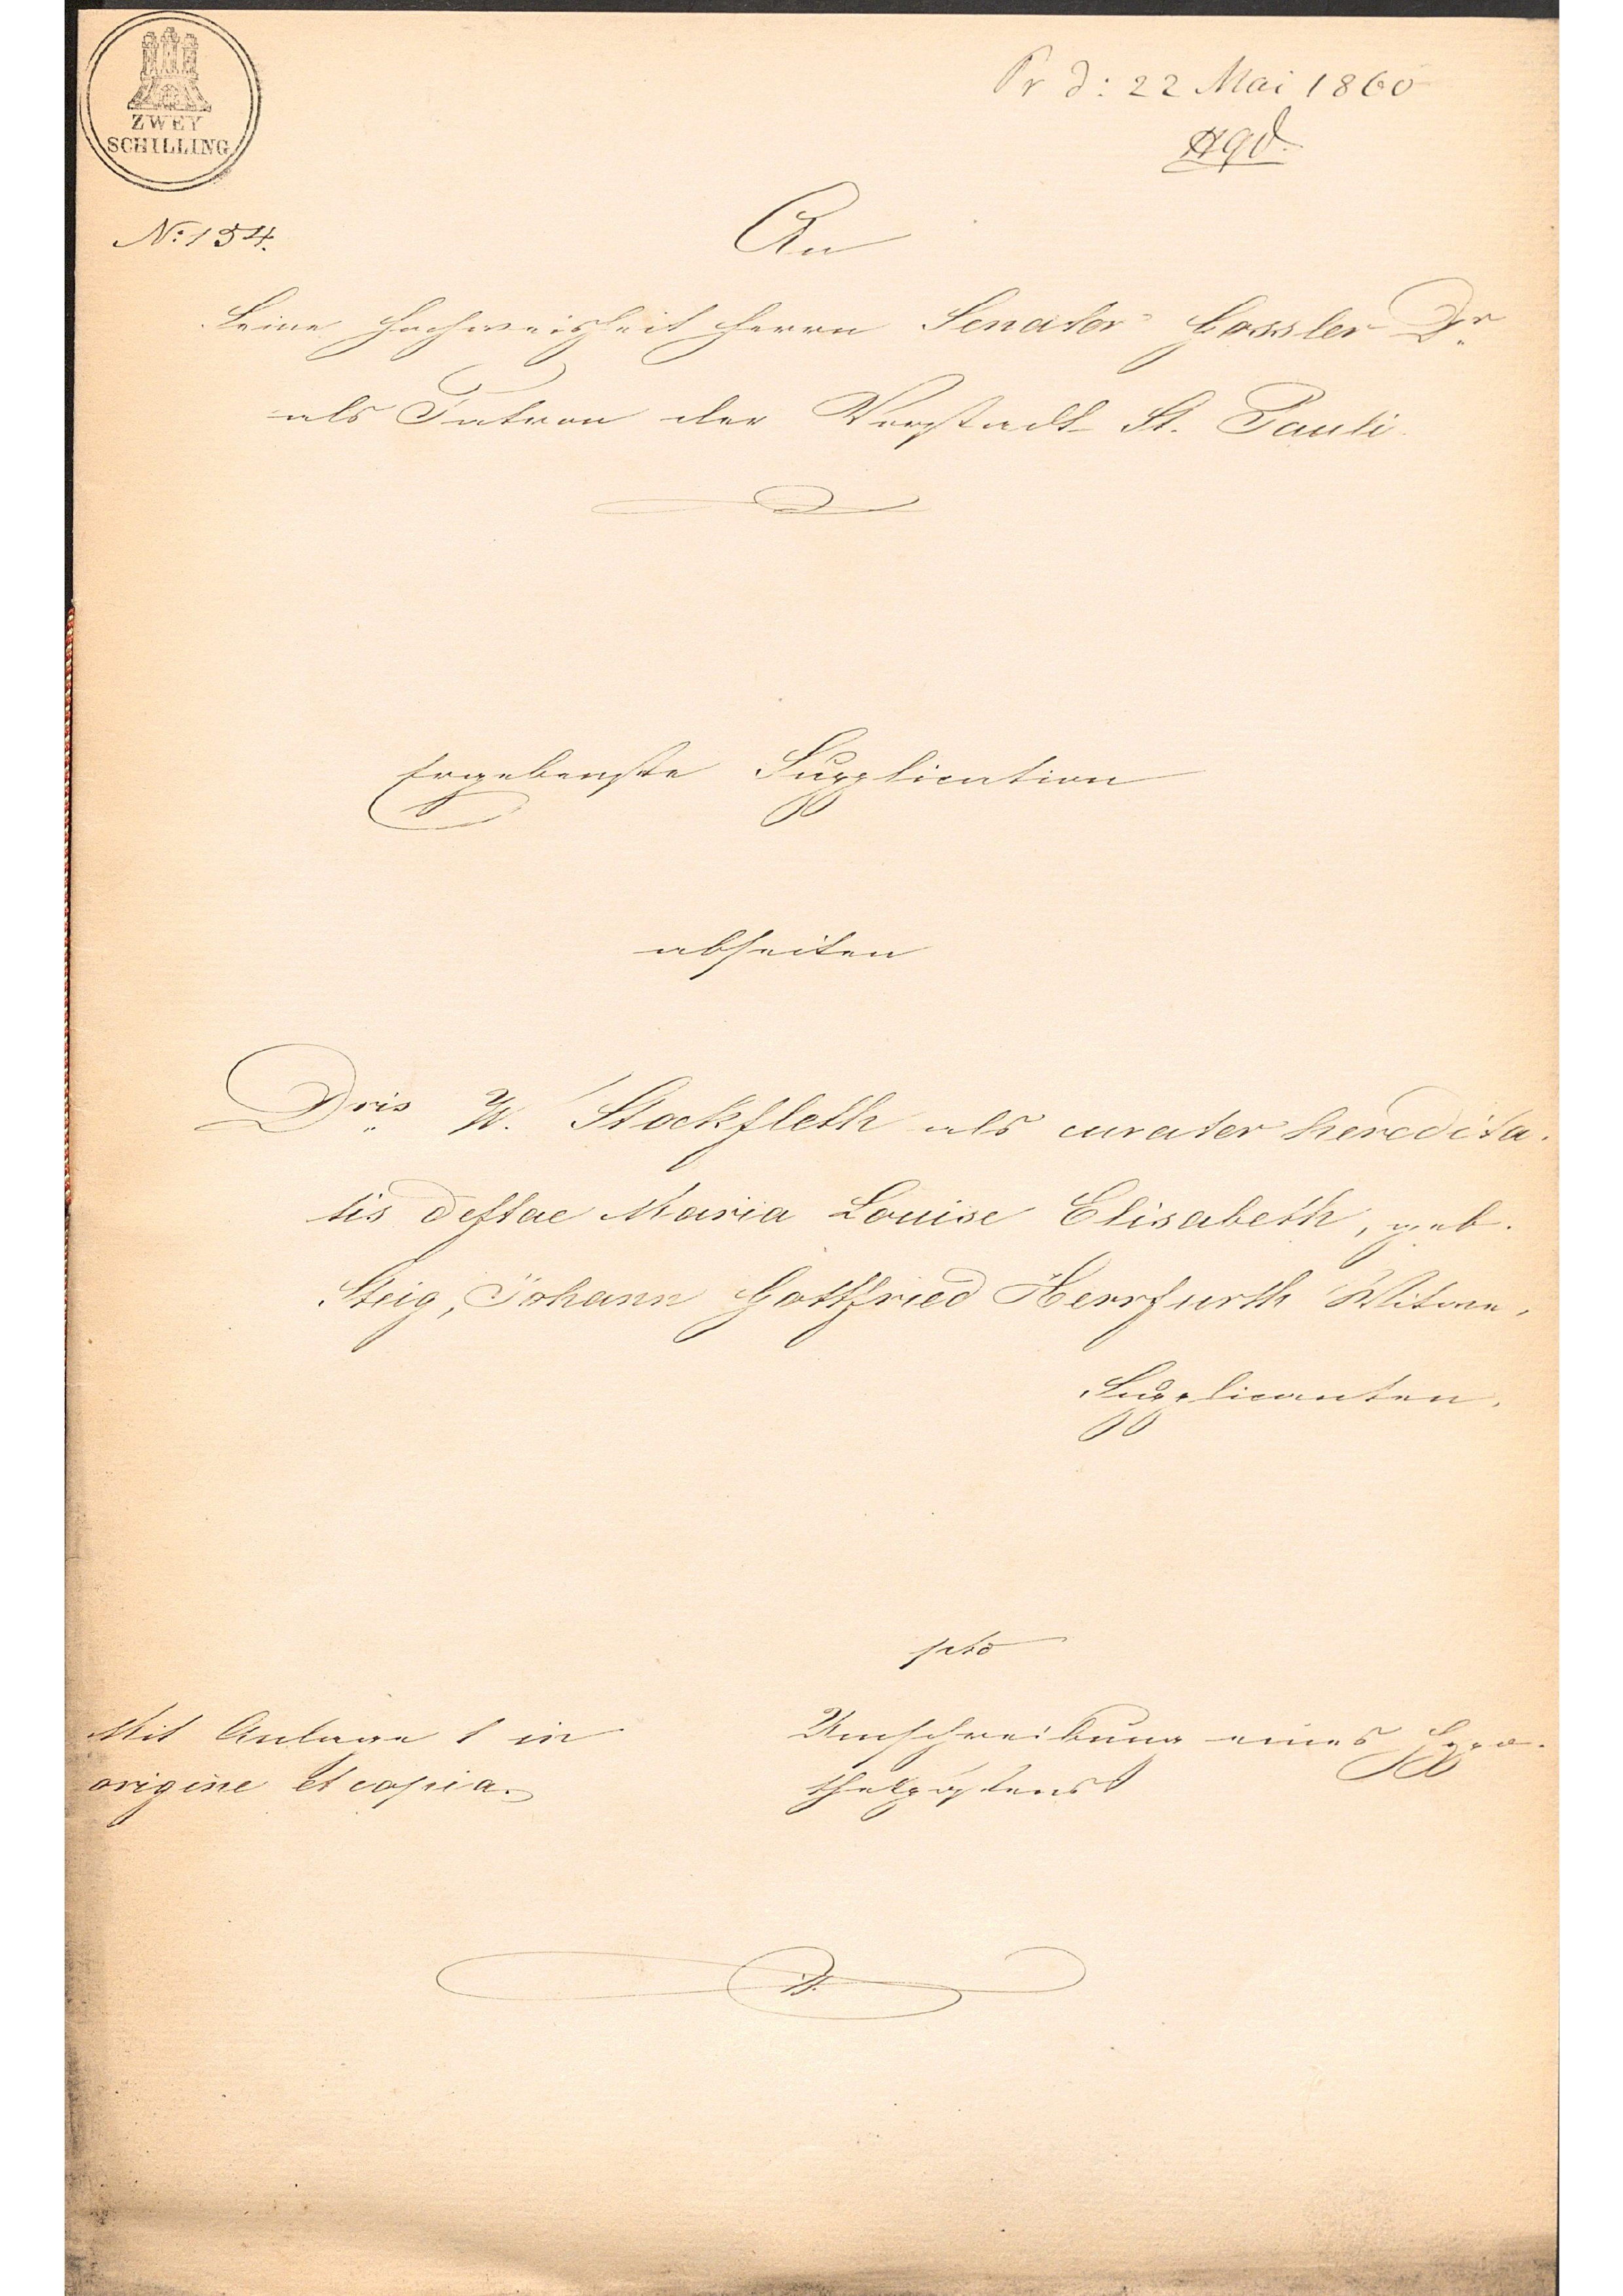 ZWEY
SCHILLING
Pr d: 22 Mai 1860
No: 154.
An
Seine Hochweisheit Herrn Senator Gossler Dr.
als Patron der Vorstadt St. Pauli
Ergebenste Supplication
abseiten
Dris. W. Stockfleth als curator heredita-
tis deftae Maria Louise Elisabeth, geb.
Steig, Johann Gottfried Herrfurth Witwe,
Supplicanten,
pto
Umschreibung eines Hypo-
thekpöstens
Mit Anlage 1 in
origine et copia.